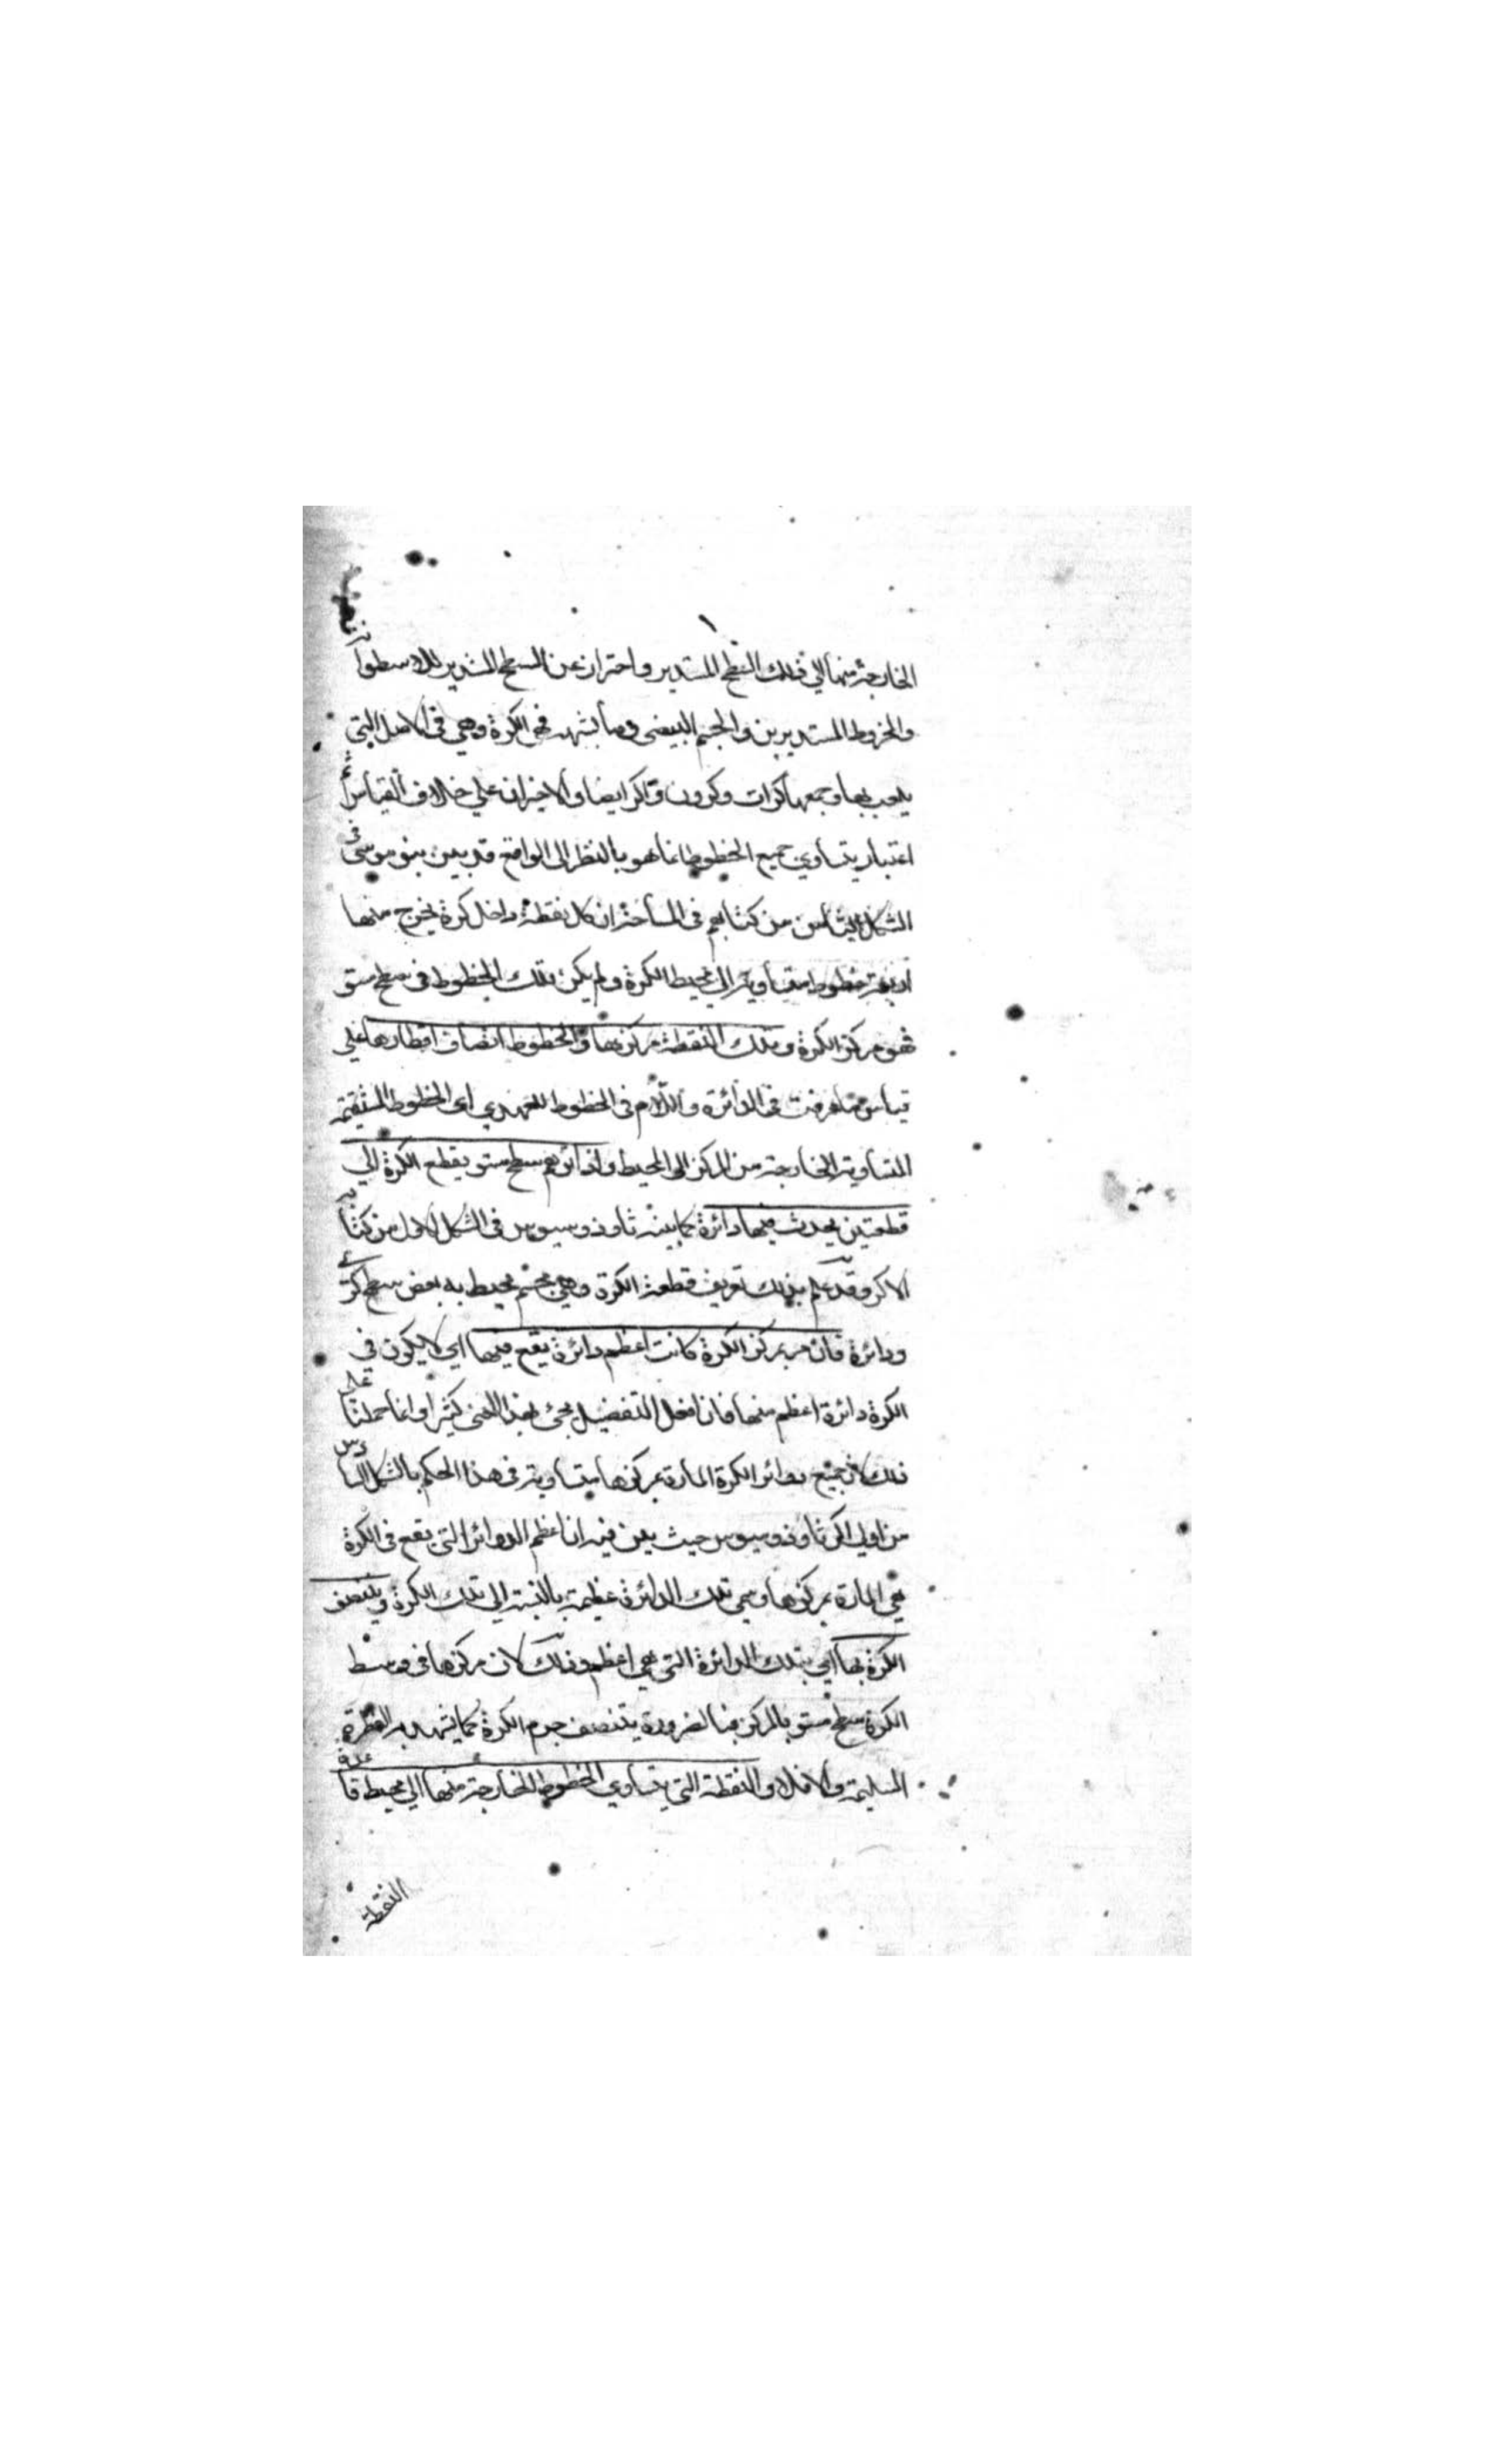 الخارجة منها الى ذلك السطح المستدير واحتراز عن السطح المستدير للاسطوانة
والمخروط المستديرين والجسم البيضى وما يشبهه فهى الكرة وهي في الاصل التي
يلعب بها وجمعها كرات وكرون واكر ايضا والاخيران علي خلاف القياس ثم
اعتبار تساوي جميع الخطوط انما هو بالنظر الى الواقع قد بين بنو موسى في
الشكل الثامن من كتابهم فى المساحة ان كل نقطة داخل كرة يخرج منها
اربعة خطوط متساوية الي محيط الكرة ولم يكن تلك الخطوط في سطح مستو
فهو مركز الكرة وتلك النقطة مركزها والخطوط انصاف اقطارها علي
قياس ما عرفت في الدائرة واللام فى الخطوط للعهد اي الخطوط المستقيمة
المتساوية الخارجة من المركز الى المحيط واذا توهم سطح مستو يقطع الكرة الي
قطعتين يحدث فيها دائرة كما بينه ثاوذوسيوس فى الشكل الاول من كتابه
الاكر وقد علم بذلك تعريف قطعة الكرة وهي مجسم يحيط به بعض سطح كرة
ودائرة فان مر بمركز الكرة كانت اعظم دائرة يقع فيها اي لا يكون في
الكرة دائرة اعظم منها فان افعل التفضيل يجئ بهذا المعنى كثيرا وانما حملنا علي
ذلك لان جميع دوائر الكرة المارة بمركزها متساوية في هذا الحكم بالشكل السادس
من اولي اكر ثاوذوسيوس حيث بين فيه ان اعظم الدوائر التي يقع في الكرة
هي المارة بمركزها وسمى تلك الدائرة عظيمة بالنسبة الي تلك الكرة وينتصف
الكرة بها اي بتلك الدائرة التي هي اعظم وذلك لان مركزها في وسط
الكرة سطح مستو بالمركز فبالضرورة يتنصف جرم الكرة كما يشهد به الفطرة
السليمة والا فلا والنقطة التي يتساوي الخطوط الخارجة منها الي محيط قاعدة
النقطة